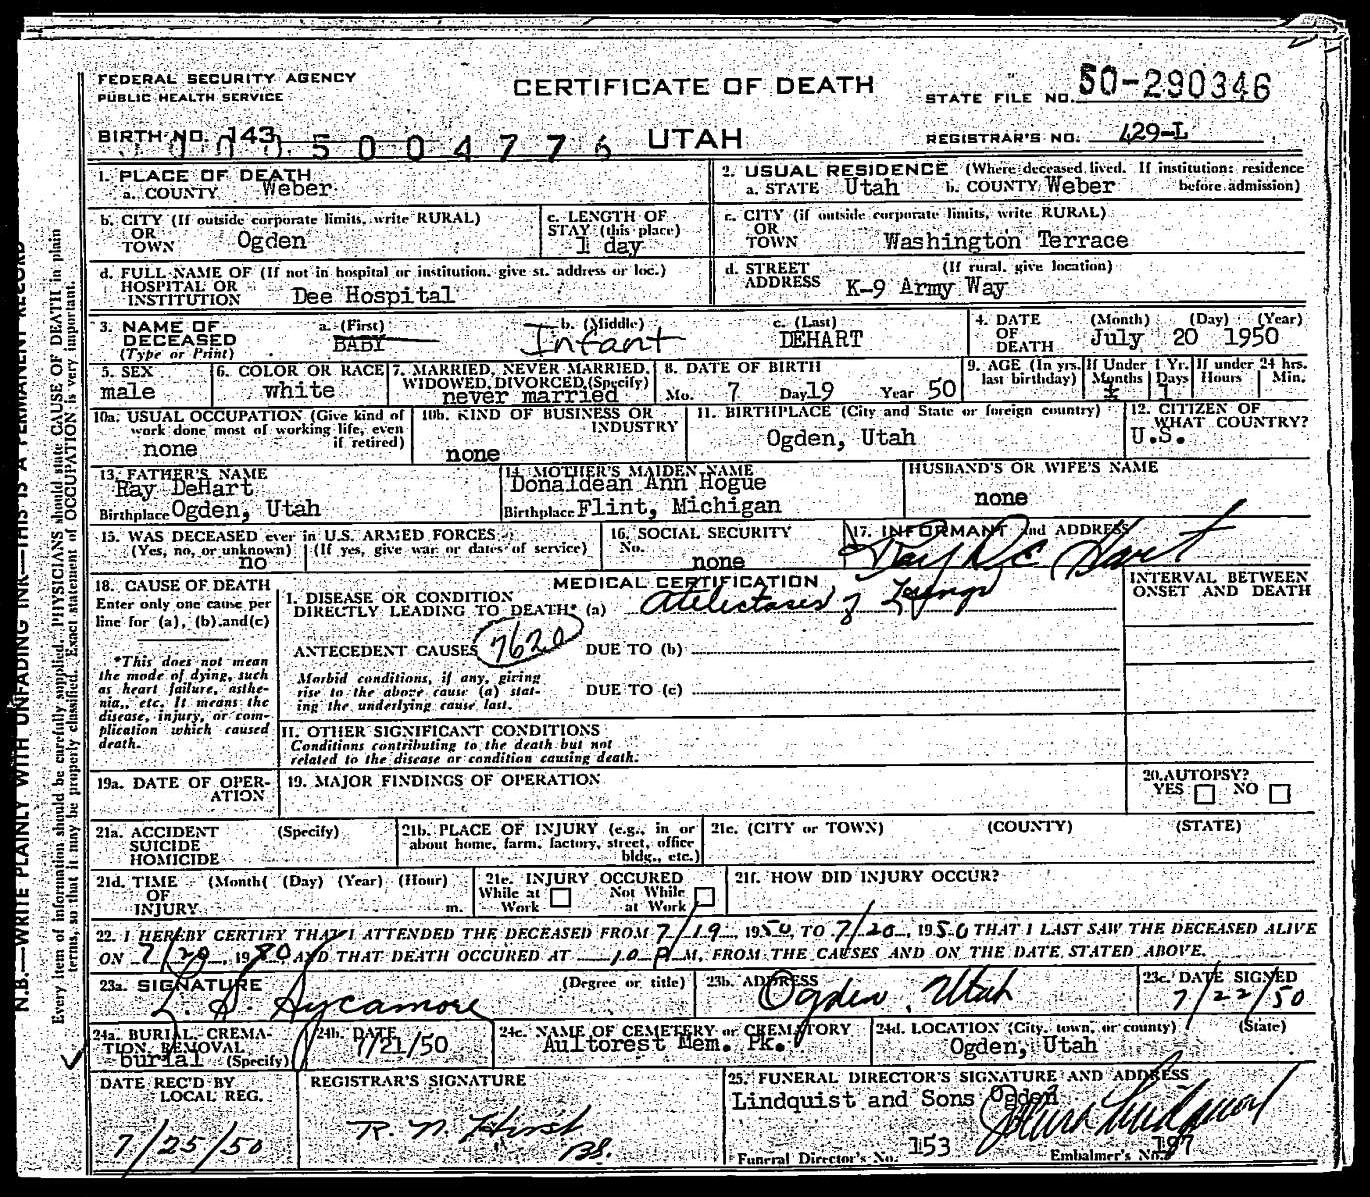 FEDERAL SECURITY AGENCY
PUBLIC HEALTH SERVICE
CERTIFICATE OF DEATH
STATE FILE NO. 50-290346
BIRTH NO. 143
0005004776
UTAH
REGISTRAR'S NO. 429-L
1. PLACE OF DEATH
a. COUNTY Weber
2. USUAL RESIDENCE (Where deceased lived. If institution: residence
a. STATE Utah b. COUNTY Weber before admission)
b. CITY (If outside corporate limits, write RURAL)
OR
TOWN Ogden
c. LENGTH OF
STAY (this place)
1 day
c. CITY (if outside corporate limits, write RURAL)
OR
TOWN Washington Terrace
d. FULL NAME OF (If not in hospital or institution, give st. address or loc.)
HOSPITAL OR
INSTITUTION Dee Hospital
d. STREET (If rural, give location)
ADDRESS K-9 Army Way
3. NAME OF
DECEASED
(Type or Print)
a. (First)
BABY
b. (Middle)
Infant
c. (Last)
DEHART
4. DATE (Month) (Day) (Year)
OF
DEATH July 20 1950
5. SEX
male
6. COLOR OR RACE
white
7. MARRIED, NEVER MARRIED,
WIDOWED, DIVORCED (Specify)
never married
8. DATE OF BIRTH
Mo. 7 Day 19 Year 50
9. AGE (In yrs.
last birthday)
If Under 1 Yr.
Months Days
1
If under 24 hrs.
Hours Min.
10a. USUAL OCCUPATION (Give kind of
work done most of working life, even
if retired)
none
10b. KIND OF BUSINESS OR
INDUSTRY
none
11. BIRTHPLACE (City and State or foreign country)
Ogden, Utah
12. CITIZEN OF
WHAT COUNTRY?
U.S.
13. FATHER'S NAME
Ray DeHart
Birthplace Ogden, Utah
14. MOTHER'S MAIDEN NAME
Donaldean Ann Hogue
Birthplace Flint, Michigan
HUSBAND'S OR WIFE'S NAME
none
15. WAS DECEASED ever in U.S. ARMED FORCES?
(Yes, no, or unknown) (If yes, give war or dates of service)
no
16. SOCIAL SECURITY
No.
none
17. INFORMANT and ADDRESS
Ray De Hart
18. CAUSE OF DEATH
Enter only one cause per
line for (a), (b) and (c)
*This does not mean
the mode of dying, such
as heart failure, asthe-
nia, etc. It means the
disease, injury, or com-
plication which caused
death.
MEDICAL CERTIFICATION
I. DISEASE OR CONDITION
DIRECTLY LEADING TO DEATH* (a) Atelectases of Lungs
ANTECEDENT CAUSES 7620 DUE TO (b)
Morbid conditions, if any, giving
rise to the above cause (a) stat-
ing the underlying cause last.
DUE TO (c)
II. OTHER SIGNIFICANT CONDITIONS
Conditions contributing to the death but not
related to the disease or condition causing death.
INTERVAL BETWEEN
ONSET AND DEATH
19a. DATE OF OPER-
ATION
19. MAJOR FINDINGS OF OPERATION
20. AUTOPSY?
YES NO
21a. ACCIDENT (Specify)
SUICIDE
HOMICIDE
21b. PLACE OF INJURY (e.g., in or
about home, farm, factory, street, office
bldg., etc.)
21c. (CITY or TOWN) (COUNTY) (STATE)
21d. TIME (Month( (Day) (Year) (Hour)
OF
INJURY m.
21e. INJURY OCCURED
While at Not While
Work at Work
21f. HOW DID INJURY OCCUR?
22. I HEREBY CERTIFY THAT I ATTENDED THE DECEASED FROM 7/19, 1950, TO 7/20, 1950 THAT I LAST SAW THE DECEASED ALIVE
ON 7/20, 1950, AND THAT DEATH OCCURED AT 10 P M, FROM THE CAUSES AND ON THE DATE STATED ABOVE.
23a. SIGNATURE (Degree or title)
L. S. Sycamore
23b. ADDRESS
Ogden, Utah
23c. DATE SIGNED
7/22/50
24a. BURIAL, CREMA-
TION, REMOVAL
burial (Specify)
24b. DATE
7/21/50
24c. NAME OF CEMETERY or CREMATORY
Aultorest Mem. Pk.
24d. LOCATION (City, town, or county) (State)
Ogden, Utah
DATE REC'D BY
LOCAL REG.
7/25/50
REGISTRAR'S SIGNATURE
R. N. Hirst
25. FUNERAL DIRECTOR'S SIGNATURE AND ADDRESS
Lindquist and Sons Ogden
John Lindquist
153
197
Funeral Director's No. Embalmer's No.
N.B.—WRITE PLAINLY WITH UNFADING INK—THIS IS A PERMANENT RECORD
Every item of information should be carefully supplied. PHYSICIANS should state CAUSE OF DEATH in plain
terms, so that it may be properly classified. Exact statement of OCCUPATION is very important.